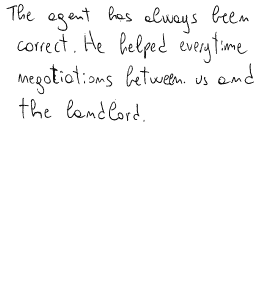 The agent has always been
correct. He helped everytime
negotiations between us and
the landlord.